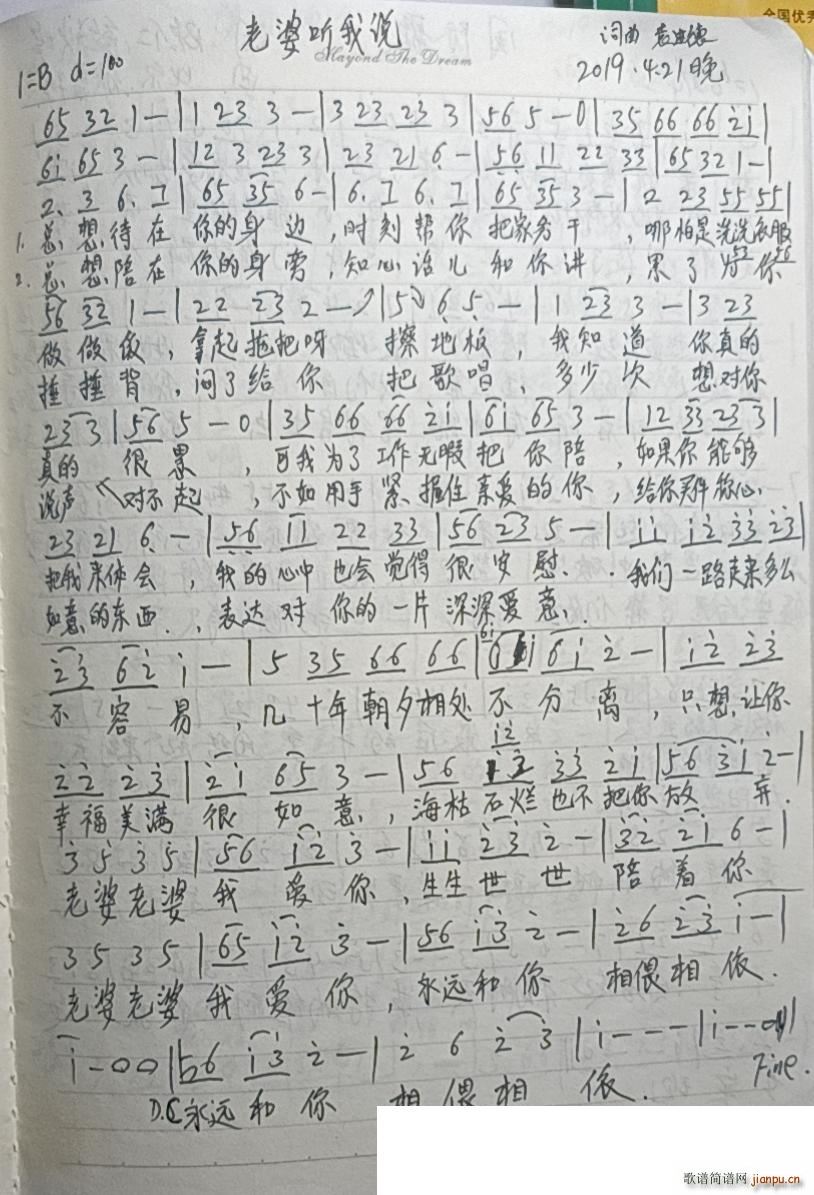 全国优秀
老婆听我说
Mayond The Dream
词曲
2019.4.21晚
1=B ♩=100
65 32 1 - | 1 23 3 - | 3 23 23 3 | 56 5 - 0 | 35 66 66 2̇1̇ |
61̇ 65 3 - | 12 3 23 3 | 23 21 6̣ - | 5̣6̣ 11 22 33 | 65 32 1 - |
1. 总想待在 你的身边，时刻帮你 把家务干，哪怕是洗洗衣服
2. 总想陪在 你的身旁，知心话儿 和你讲，累了为你
56 32 1 - | 22 23 2 - | 5 6 5 - | 1 23 3 - | 3 23
做做饭，拿起拖把呀 擦地板，我知道 你真的
捶捶背，闷了给你 把歌唱，多少次 想对你
23 3 | 56 5 - 0 | 35 66 66 2̇1̇ | 61̇ 65 3 - | 12 33 23 3 |
真的 很累，可我为了工作无暇把你陪，如果你能够
说声 对不起，不如用手紧握住亲爱的你，给你买件称心
23 21 6̣ - | 5̣6̣ 11 22 33 | 56 23 5 - | 1̇1̇ 1̇2̇ 3̇3̇ 2̇3̇ |
把我来体会，我的心中也会觉得很安慰．．我们一路走来多么
如意的东西．，表达对你的一片深深爱意．
2̇3̇ 62̇ 1̇ - | 5 35 66 66 | 61̇ 61̇ 2̇ - | 1̇2̇ 2̇3̇
不容易，几十年朝夕相处不分离，只想让你
2̇2̇ 2̇3̇ | 2̇1̇ 65 3 - | 56 1̇2̇ 3̇3̇ 2̇1̇ | 56 3̇1̇ 2̇ - |
幸福美满 很如意，海枯石烂也不把你放弃．
3̇ 5 3̇ 5 | 56 1̇2̇ 3̇ - | 1̇1̇ 2̇3̇ 2̇ - | 3̇2̇ 2̇1̇ 6 - |
老婆老婆我爱你，生生世世 陪着你
3 5 3 5 | 65 1̇2̇ 3̇ - | 56 1̇3̇ 2̇ - | 2̇6 2̇3̇ 1̇ - |
老婆老婆我爱你，永远和你 相偎相依．
1̇ - 0 0 | 56 1̇3̇ 2̇ - | 2̇ 6 2̇ 3̇ | 1̇ - - - | 1̇ - - 0 |
D.C 永远和你 相偎相依． Fine.
歌谱简谱网 jianpu.cn